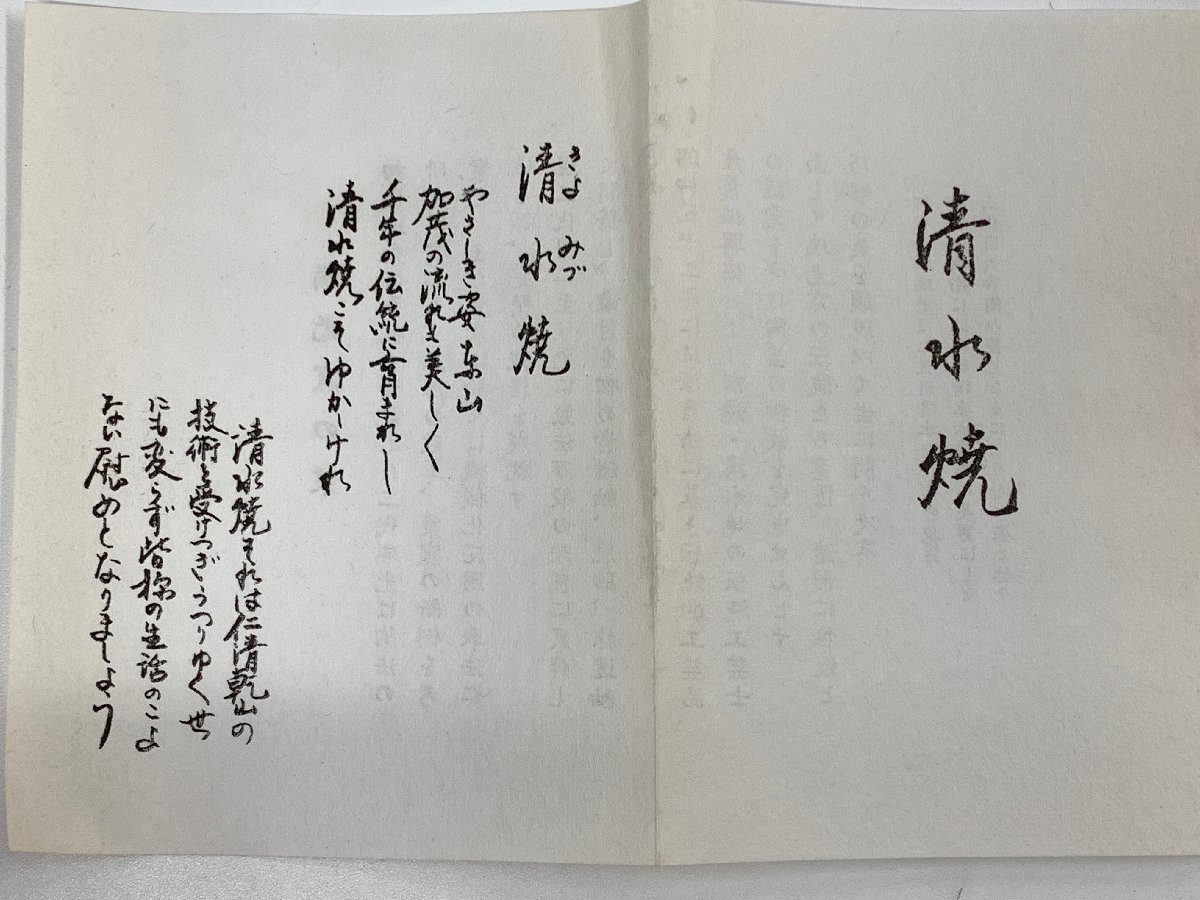 清水焼
清水焼
きよ みづ
やさしき姿東山
加茂の流れも美しく
千年の伝統に育まれし
清水焼こそゆかしけれ
清水焼それは仁清乾山の
技術を受けつぎうつりゆく世
にも変らず皆様の生活のこよ
ない慰めとなりましよう